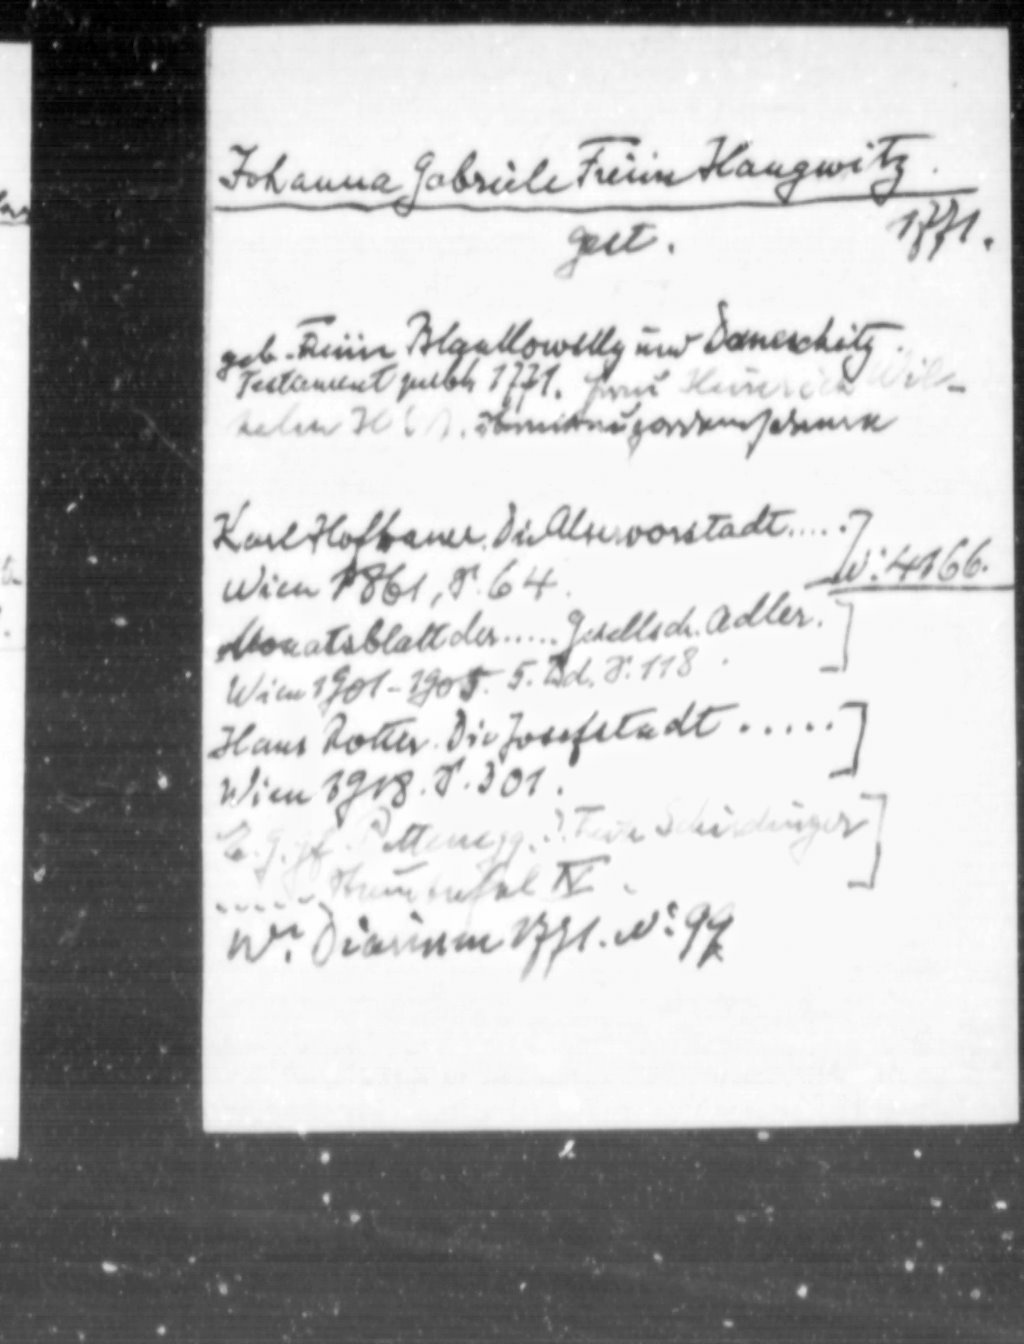 Johanna Gabriele Freiin Haugwitz.
gest. 1771.
geb. Freiin und
Testament publ. 1771. Heinrich Wil-
helm
Karl Hofbauer. Die Alservorstadt.....
Wien 1861, S. 64. N: 4166.
Monatsblatt der..... Gesellsch. Adler.
Wien 1901-1905. 5. Bd. S. 118.
Hans Rotter. Die Josefstadt.....
Wien 1918. S. 301.
E. G. Gf. Pettenegg.
..... IV.
Wr. Diarium 1771. N: 99